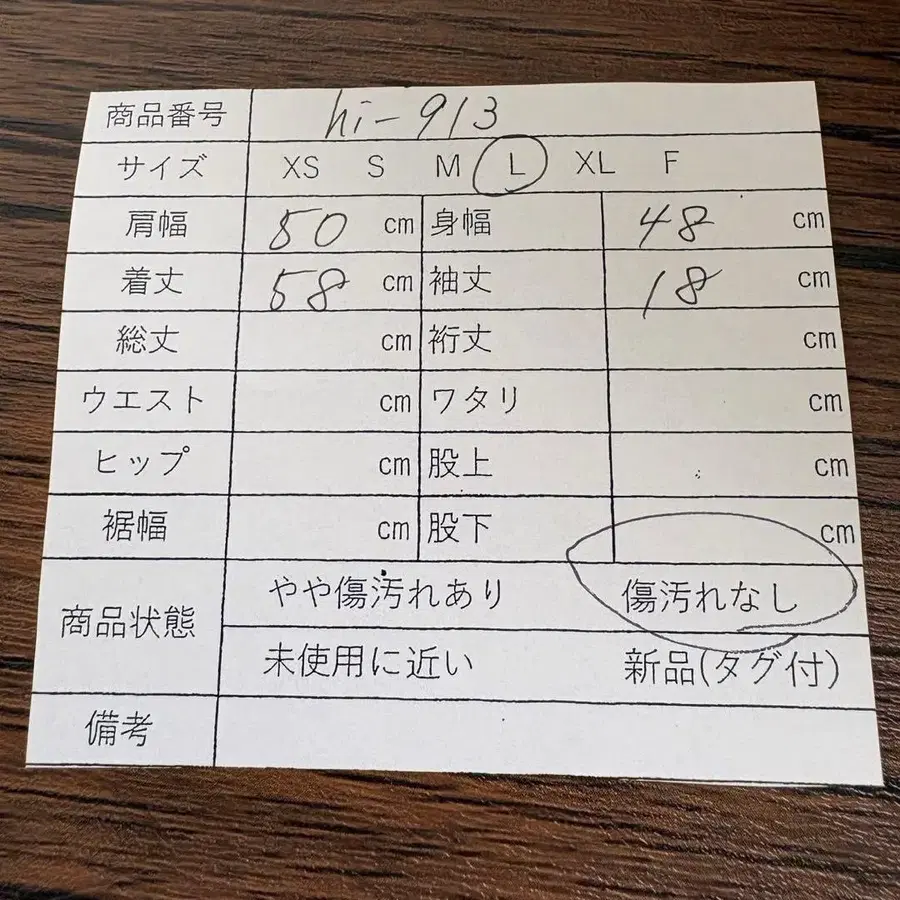 商品番号 hi-913
サイズ XS S M L XL F
肩幅 50 cm 身幅 48 cm
着丈 58 cm 袖丈 18 cm
総丈 cm 裄丈 cm
ウエスト cm ワタリ cm
ヒップ cm 股上 cm
裾幅 cm 股下 cm
商品状態 やや傷汚れあり 傷汚れなし
未使用に近い 新品(タグ付)
備考